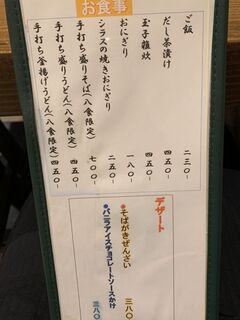 お食事
ご飯 二三〇-
だし茶漬け 四五〇-
玉子雑炊 四五〇-
おにぎり 一八〇-
シラスの焼きおにぎり 二五〇-
手打ち盛りそば(八食限定) 七〇〇-
手打ち盛りうどん(八食限定) 四五〇-
手打ち釜揚げうどん(八食限定) 四五〇-
デザート
•そばがきぜんざい 三八〇-
•バニラアイスチョコレートソースかけ 三八〇-